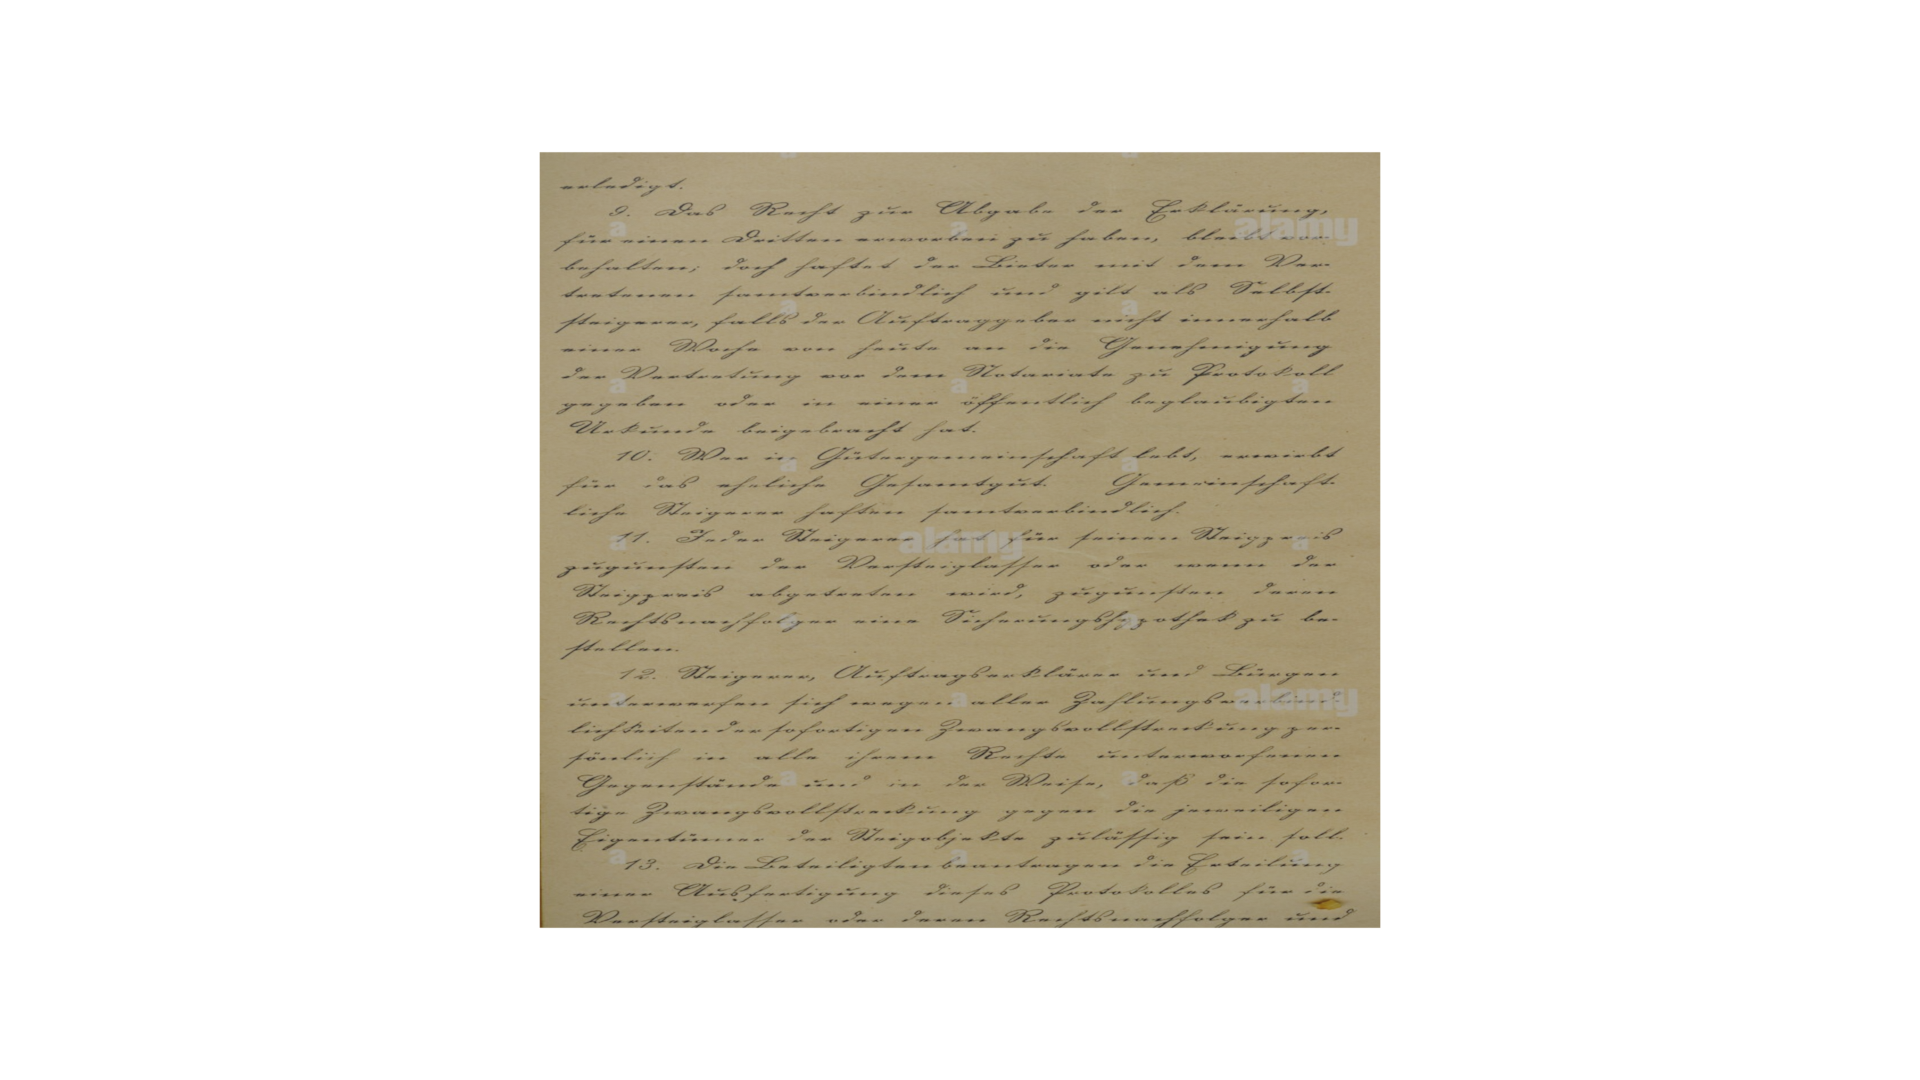 erledigt.
9. Das Recht zur Abgabe der Erklärung,
für einen Dritten erworben zu haben, bleibt vor-
behalten; doch haftet der Bieter mit dem Ver-
tretenen samtverbindlich und gilt als Selbst-
steigerer, falls der Auftraggeber nicht innerhalb
einer Woche von heute an die Genehmigung
der Vertretung vor dem Notariate zu Protokoll
gegeben oder in einer öffentlich beglaubigten
Urkunde beigebracht hat.
10. Wer in Gütergemeinschaft lebt, erwirbt
für das eheliche Gesamtgut. Gemeinschaft-
liche Steigerer haften samtverbindlich.
11. Jeder Steigerer hat für seinen Steigpreis
zugunsten der Versteiglasser oder wenn der
Steigpreis abgetreten wird, zugunsten deren
Rechtsnachfolger eine Sicherungshypothek zu be-
stellen.
12. Steigerer, Auftragserklärer und Bürgen
unterwerfen sich wegen aller Zahlungsverbind-
lichkeiten der sofortigen Zwangsvollstreckung per-
sönlich in alle ihrem Rechte unterworfenen
Gegenstände und in der Weise, daß die sofor-
tige Zwangsvollstreckung gegen die jeweiligen
Eigentümer der Steigobjekte zulässig sein soll.
13. Die Beteiligten beantragen die Erteilung
einer Ausfertigung dieses Protokolles für die
Versteiglasser oder deren Rechtsnachfolger und